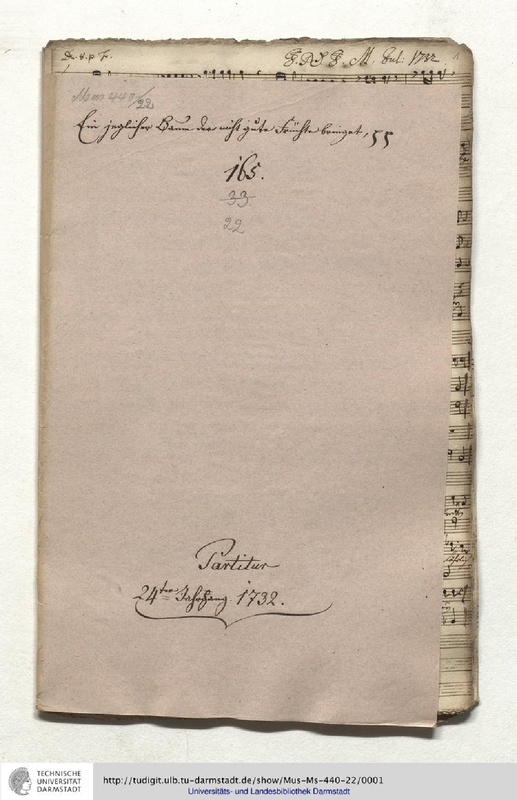 G. N. G. M. Jul: 1732
Mus 440/22
Ein jeglicher Baum der nicht gute Früchte bringet,
165.
33.
22
Partitur
24ter Jahrgang. 1732.
TECHNISCHE
UNIVERSITÄT
DARMSTADT
http://tudigit.ulb.tu-darmstadt.de/show/Mus-Ms-440-22/0001
Universitäts- und Landesbibliothek Darmstadt